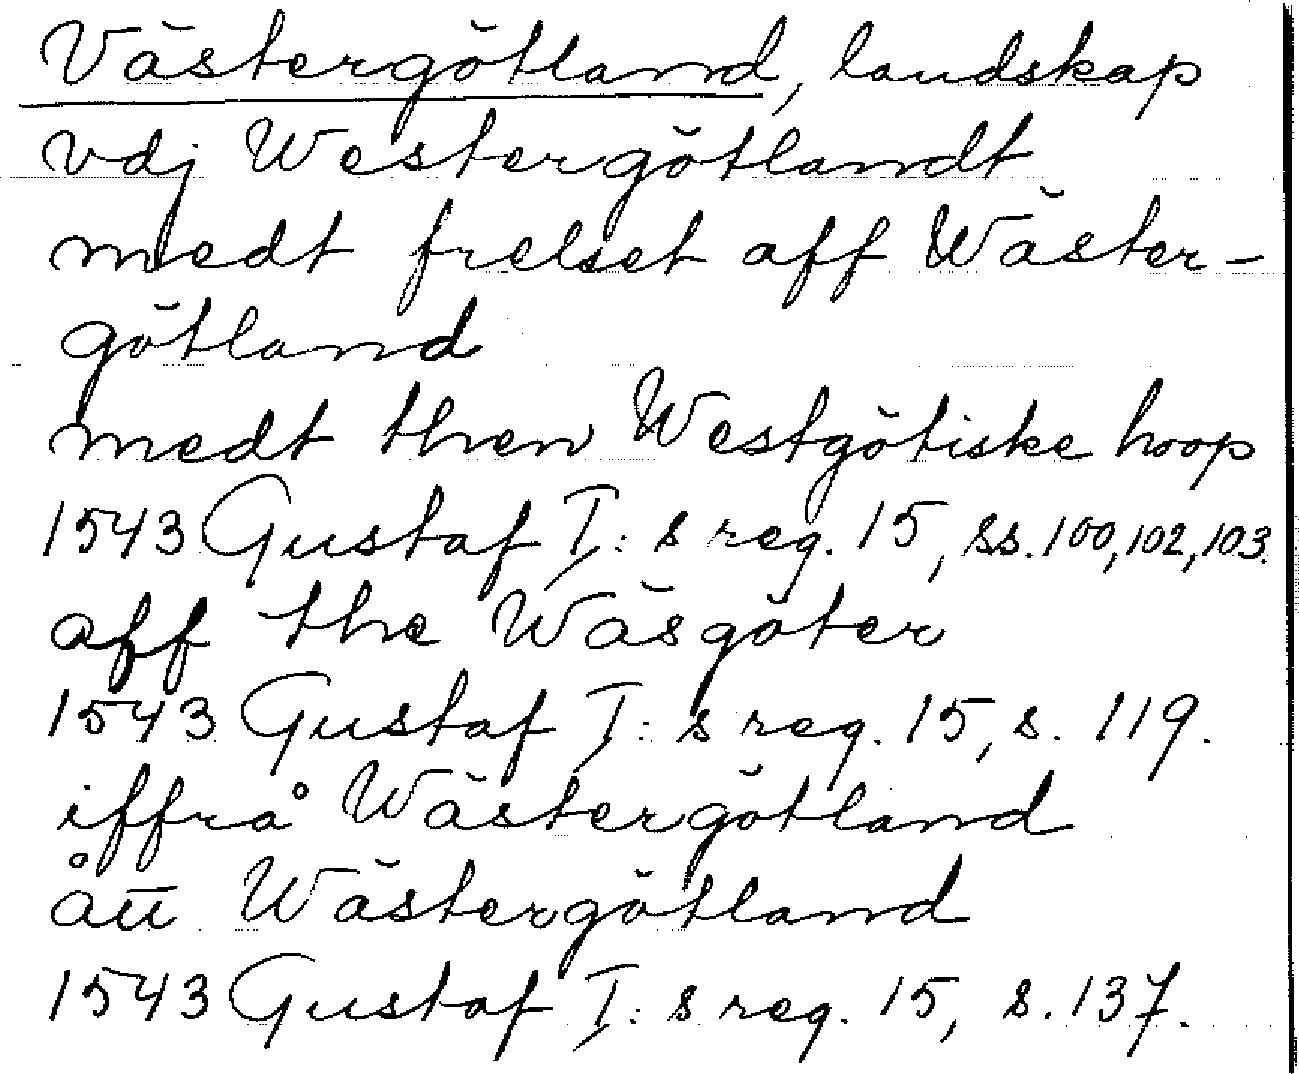 Västergötland, landskap
vdj Westergötlandt
medt frelset aff Wäster-
götland
medt then Westgötiske hoop
1543 Gustaf I:s reg. 15, ss. 100, 102, 103.
aff the Wäsgöter
1543 Gustaf I:s reg. 15, s. 119.
iffrå Wästergötland
ått Wästergötland
1543 Gustaf I:s reg. 15, s. 137.